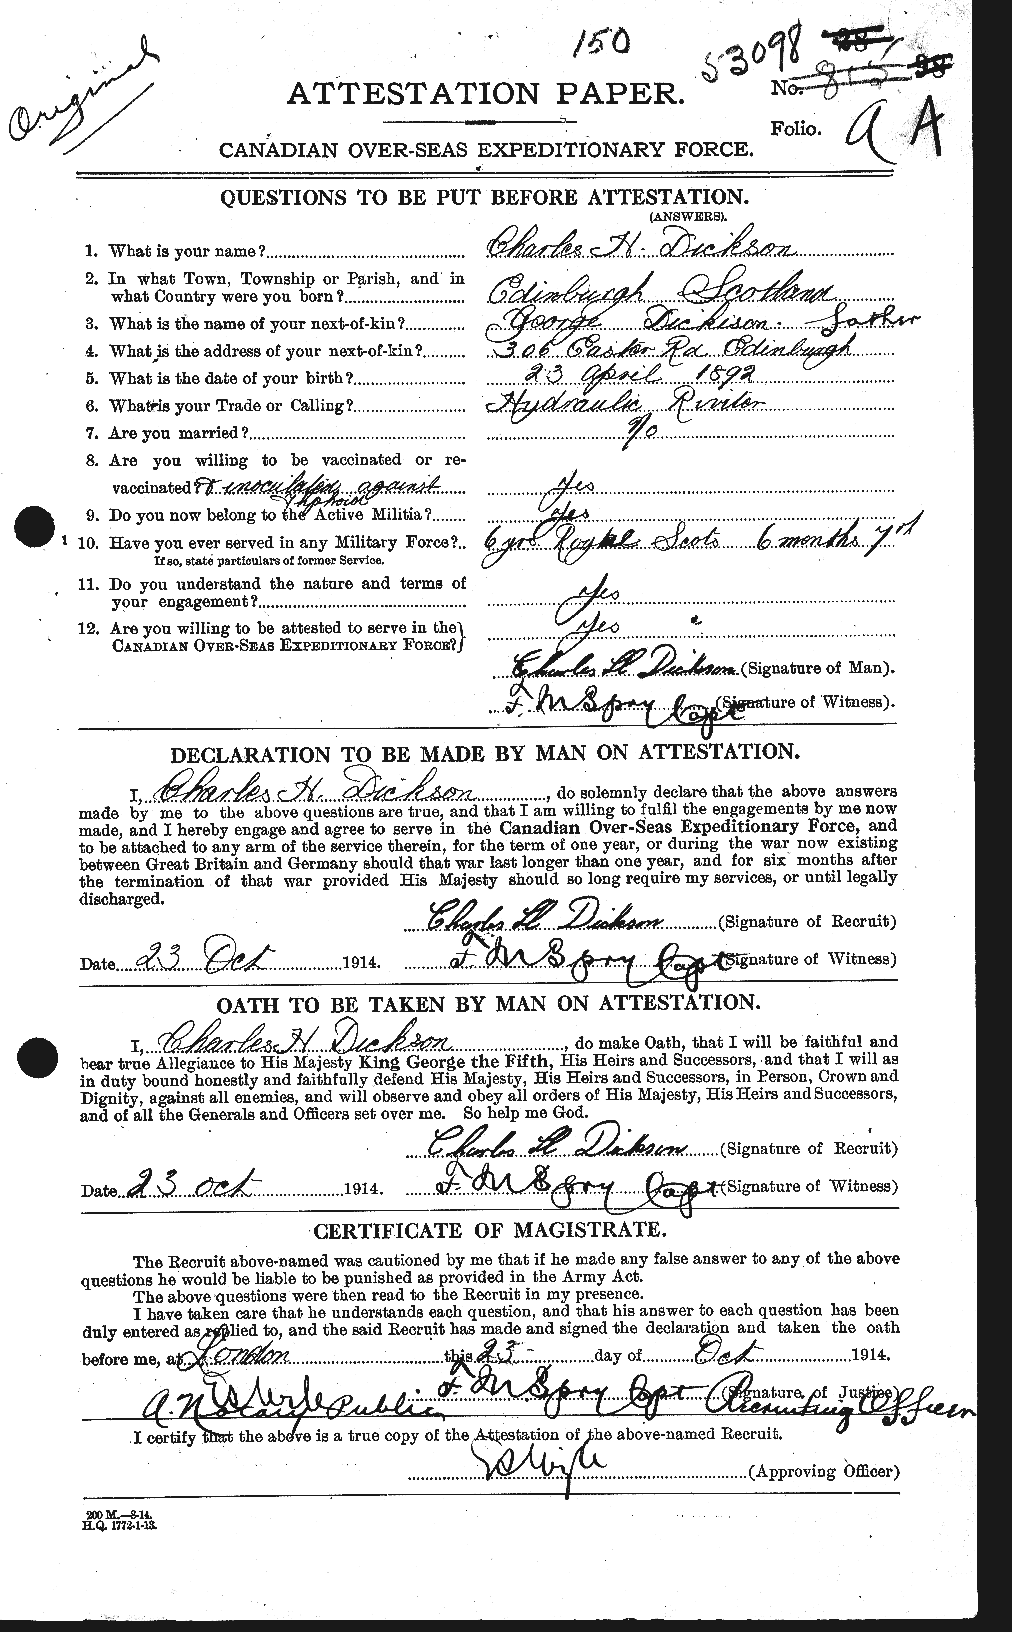 Original
150
53098
No.
Folio. a A
ATTESTATION PAPER.
CANADIAN OVER-SEAS EXPEDITIONARY FORCE.
QUESTIONS TO BE PUT BEFORE ATTESTATION.
(ANSWERS).
1. What is your name? Charles H. Dickson
2. In what Town, Township or Parish, and in
what Country were you born? Edinburgh Scotland
3. What is the name of your next-of-kin? George Dickison. father
4. What is the address of your next-of-kin? 306 Easter Rd Edinburgh
5. What is the date of your birth? 23 April 1892
6. What is your Trade or Calling? Hydraulic Riviter
7. Are you married? No
8. Are you willing to be vaccinated or re-
vaccinated? & inoculated against Yes
typhoid
9. Do you now belong to the Active Militia? Yes
10. Have you ever served in any Military Force? 6 yrs Royal Scots 6 months 7th
If so, state particulars of former Service.
11. Do you understand the nature and terms of
your engagement? Yes
12. Are you willing to be attested to serve in the Yes
CANADIAN OVER-SEAS EXPEDITIONARY FORCE?
Charles H Dickson (Signature of Man).
F. M Spry Capt (Signature of Witness).
DECLARATION TO BE MADE BY MAN ON ATTESTATION.
I, Charles H. Dickson, do solemnly declare that the above answers
made by me to the above questions are true, and that I am willing to fulfil the engagements by me now
made, and I hereby engage and agree to serve in the Canadian Over-Seas Expeditionary Force, and
to be attached to any arm of the service therein, for the term of one year, or during the war now existing
between Great Britain and Germany should that war last longer than one year, and for six months after
the termination of that war provided His Majesty should so long require my services, or until legally
discharged.
Charles H Dickson (Signature of Recruit)
Date 23 Oct 1914. F. M Spry Capt (Signature of Witness)
OATH TO BE TAKEN BY MAN ON ATTESTATION.
I, Charles H Dickson, do make Oath, that I will be faithful and
bear true Allegiance to His Majesty King George the Fifth, His Heirs and Successors, and that I will as
in duty bound honestly and faithfully defend His Majesty, His Heirs and Successors, in Person, Crown and
Dignity, against all enemies, and will observe and obey all orders of His Majesty, His Heirs and Successors,
and of all the Generals and Officers set over me. So help me God.
Charles H Dickson (Signature of Recruit)
Date 23 Oct 1914. F. M Spry Capt (Signature of Witness)
CERTIFICATE OF MAGISTRATE.
The Recruit above-named was cautioned by me that if he made any false answer to any of the above
questions he would be liable to be punished as provided in the Army Act.
The above questions were then read to the Recruit in my presence.
I have taken care that he understands each question, and that his answer to each question has been
duly entered as replied to, and the said Recruit has made and signed the declaration and taken the oath
before me, at London this 23 day of Oct 1914.
F. M Spry Capt Recruiting Officer (Signature of Justice)
A Notary Public
I certify that the above is a true copy of the Attestation of the above-named Recruit.
(Approving Officer)
200 M.—8-14.
H.Q. 1772-1-13.